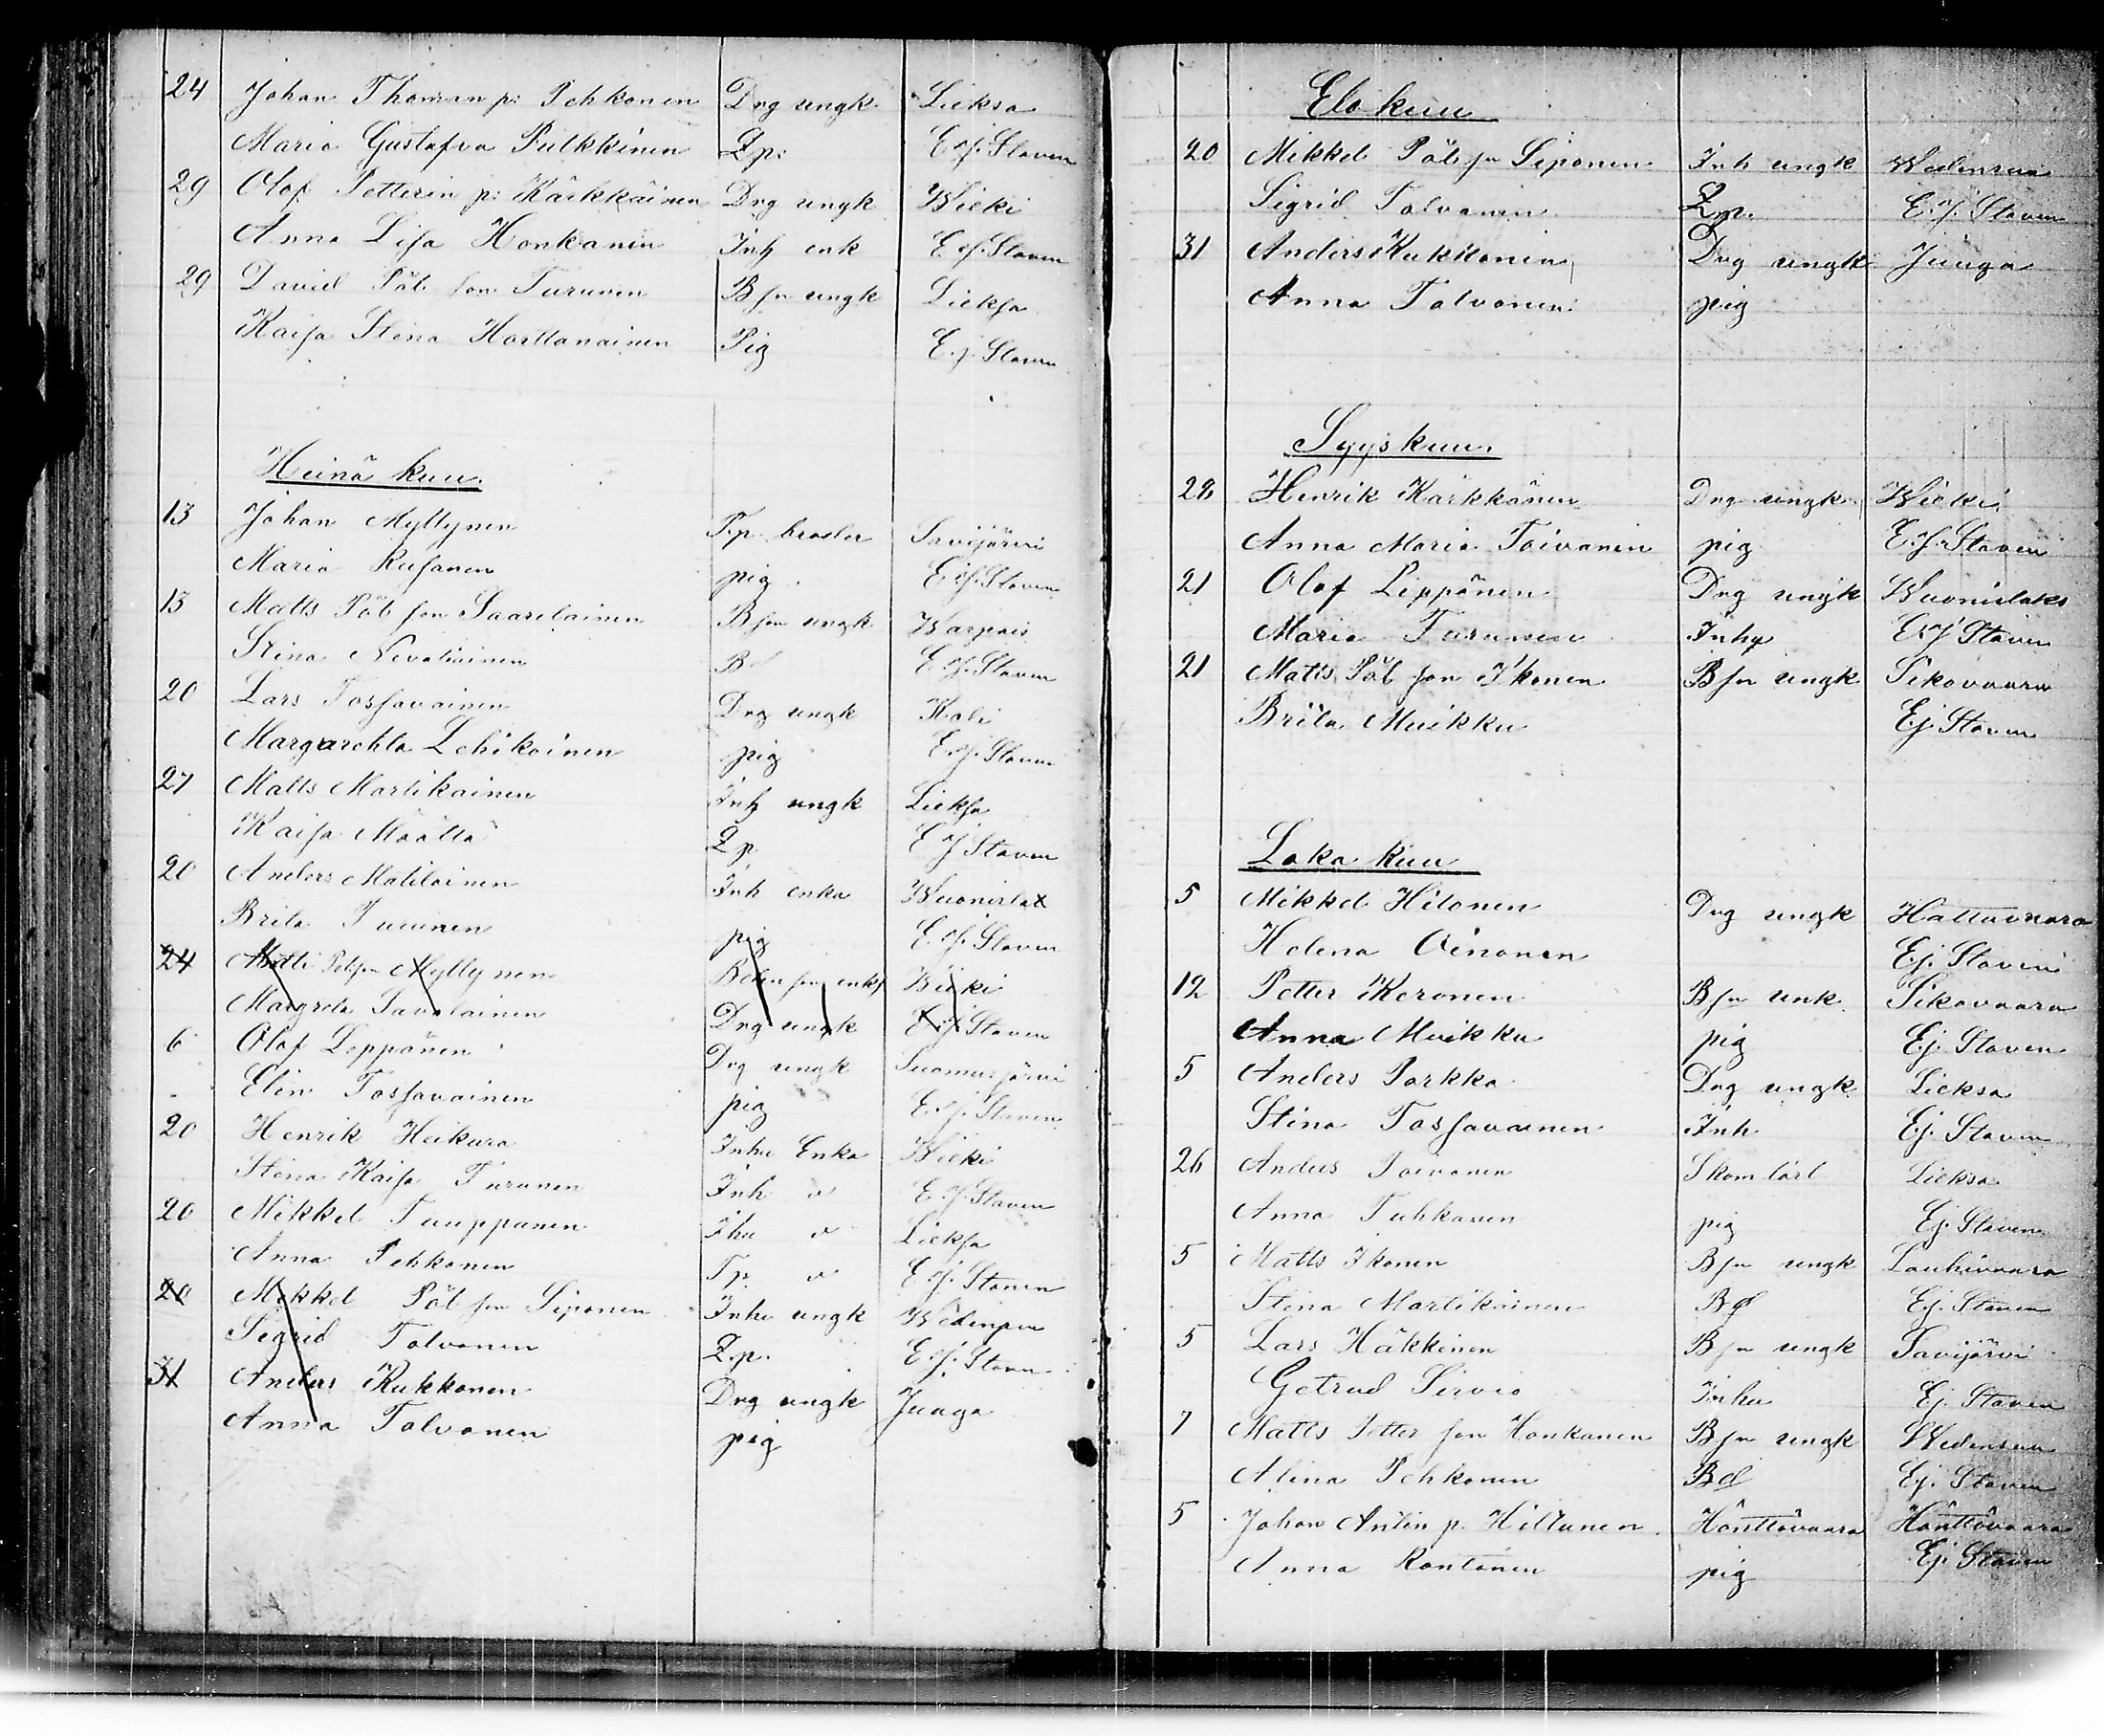 24 Johan Thoman p: Pehkonen Drg ungk Lieksa
Maria Gustafva Pulkkinen Lp: Ej. Staven
29 Olof Petterin p: Kärkkäinen Drg ungk Wieki
Anna Lisa Honkanen Inh enk Ej. Staven
29 David Påls son Turunen Bsn ungk Lieksa
Kaisa Stina Horttanainen Pig Ej. Staven
Heinä kuu.
13 Johan Myllynen Tp. Savijärvi
Maria Rusanen pig. Ej. Staven
13 Matts Påls son Saarelainen Bson ungk Warpais
Stina Nevalainen Bd Ej. Staven
20 Lars Tossavainen Drg ungk Koli
Margarehta Lehikoinen pig Ej. Staven
27 Matts Martikainen Inh ungk Lieksa
Kaisa Määttä Lp. Ej Staven
20 Anders Matilainen Inh enka Wuonislax
Brita Turunen pig Ej. Staven
24 Matti Myllynen Wieki
Margreta Savolainen Drg ungk Ej. Staven
6 Olof Leppänen Drg ungk Suomusjärvi
Elin Tossavainen pig Ej. Staven
20 Henrik Heikura Inhu Enka Wieki
Stina Kaisa Turunen Inh v Ej. Staven
20 Mikkel Tauppanen Ihu v Lieksa
Anna Pehkonen Tp. v Ej. Staven
20 Mikkel Påls son Siponen Inhu ungk
Segrid Tolvanen Lp. Ej. Staven
31 Anders Kukkonen Drg ungk Juuga
Anna Tolvanen pig
Elo kuu
20 Mikkel Påls sn Siponen Inh ungk Wedensuu
Sigrid Tolvanen Lp. Ej. Staven
31 Anders Kukkonen Drg ungk Juuga
Anna Tolvanen pig
Syyskuu.
28 Henrik Kärkkänen Drg ungk Wieki
Anna Maria Toivanen pig Ej. Staven
21 Olof Lippönen Drg ungk Wuonislaks
Maria Turunen Inhy Ej Staven
21 Matts Påls son Ikonen Bsn ungk Sikovaara
Brita Muikku Ej Staven
Loka kuu
5 Mikkel Hilonen Drg ungk Hattuvaara
Helena Oinonen Ej. Staven
12 Petter Keronen Bsn unk. Sikovaara
Anna Muikku pig Ej. Staven
5 Anders Parkka Drg ungk Lieksa
Stina Tossavainen Inh Ej. Staven
26 Anders Toivanen Skom lärl Lieksa
Anna Tuhkanen pig Ej. Staven
5 Matts Ikonen Bsn ungk Lauhivaara
Stina Martikainen Bd Ej. Staven
5 Lars Häkkinen Bsn ungk Savijärvi
Getrud Sirvio Inhu Ej. Staven
7 Matts Petter son Honkanen Bsn ungk Wedensuu
Alina Pehkonen Bd Ej. Staven
5 Johan Antin p. Hiltunen Hönttövaara Hönttövaara
Anna Rontonen pig Ej. Staven